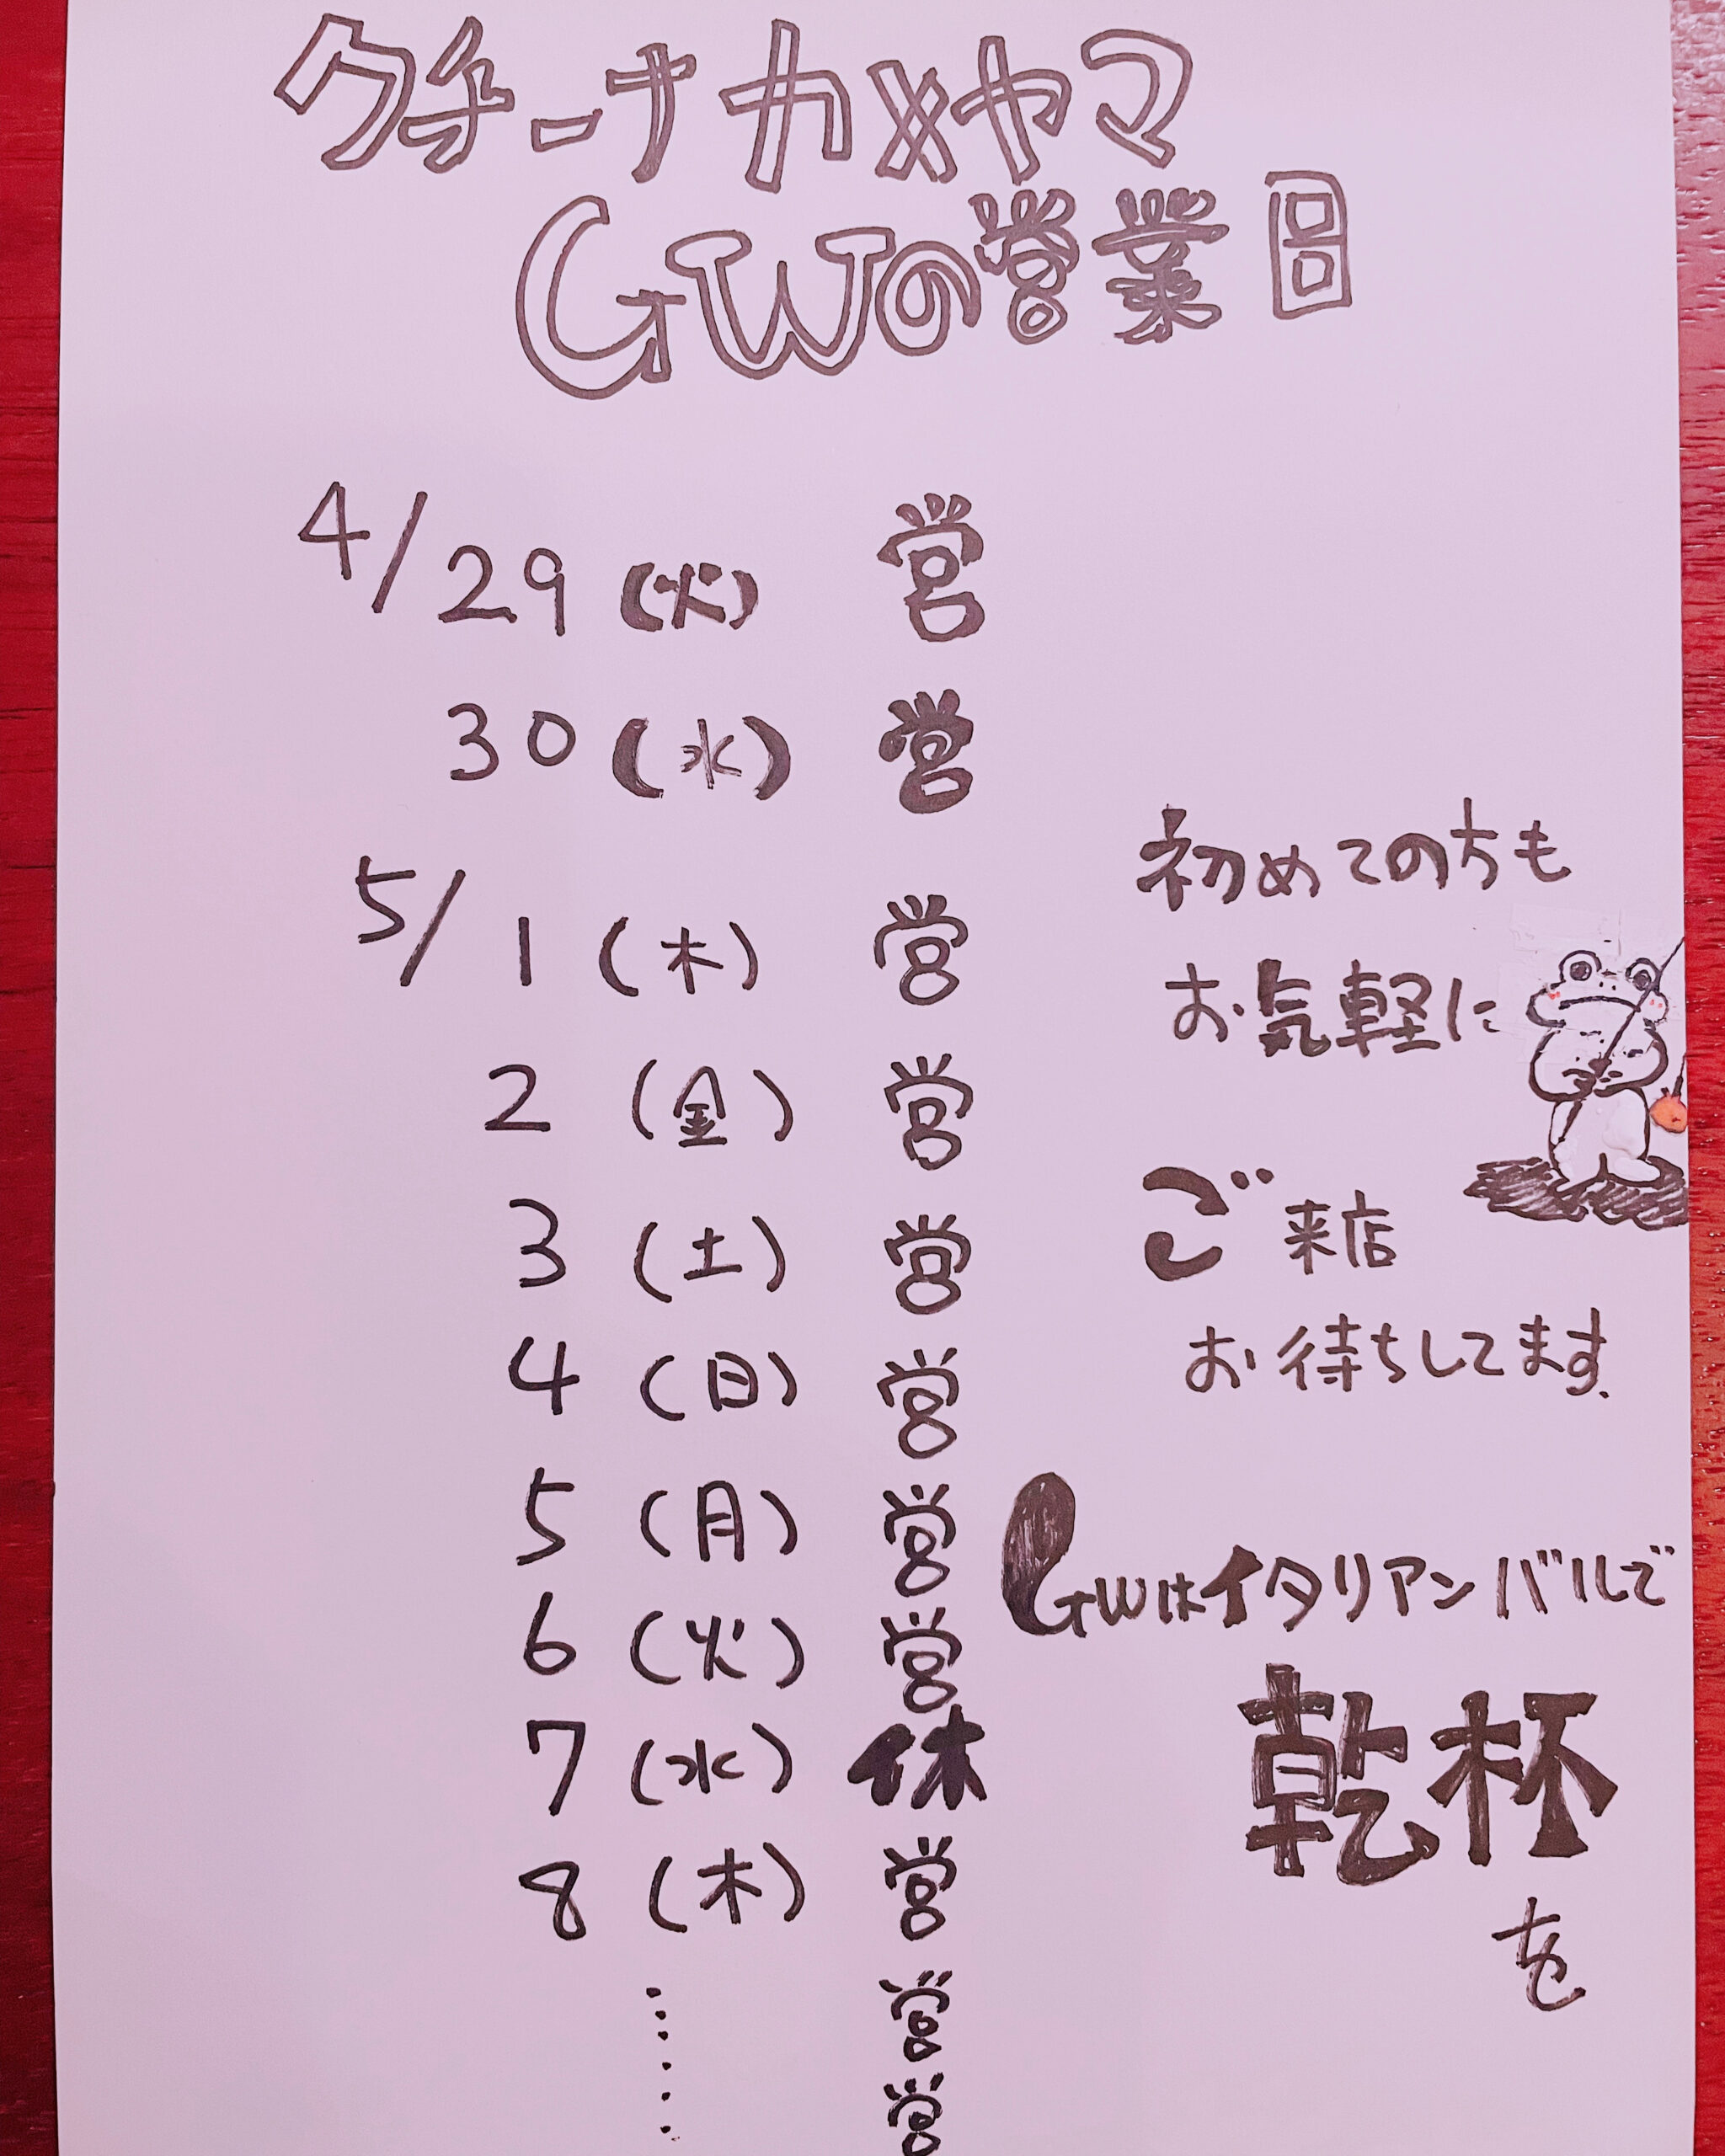 クチーナカメヤマ
GWの営業日
4/29(火) 営
30(水) 営
5/1(木) 営
2(金) 営
3(土) 営
4(日) 営
5(月) 営
6(火) 営
7(水) 休
8(木) 営
営
営
初めての方も
お気軽に
ご来店
お待ちしてます
GWはイタリアンバルで
乾杯
を